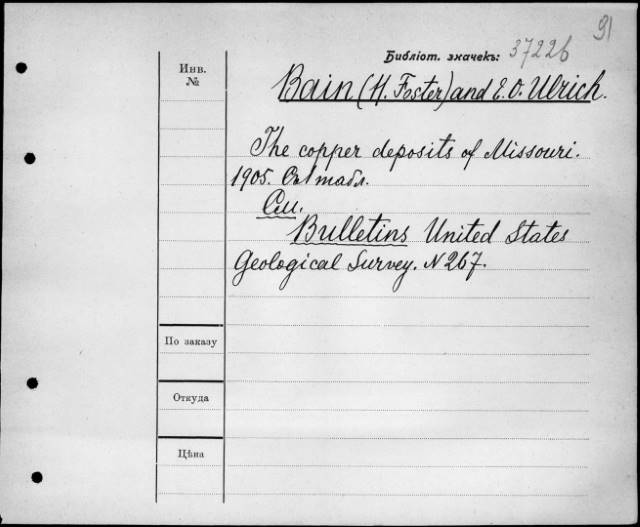 91
Библіот. значекъ: 37226
Инв.
№
Bain (H. Foster) and E. O. Ulrich.
The copper deposits of Missouri.
1905. Съ 1 табл.
См.
Bulletins United States
Geological Survey. N 267.
По заказу
Откуда
Цѣна